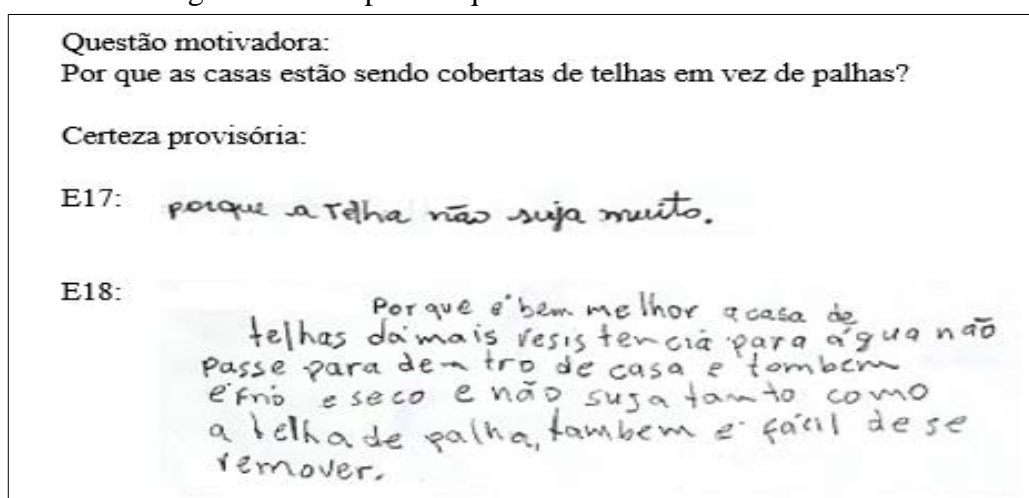 Questão motivadora:
Por que as casas estão sendo cobertas de telhas em vez de palhas?
Certeza provisória:
E17: porque a telha não suja muito.
E18:
Porque é bem melhor a casa de
telhas dá mais resistencia para água não
passe para dentro de casa e tombem
é frio e seco e não suja tanto como
a telha de palha, tambem é fácil de se
remover.